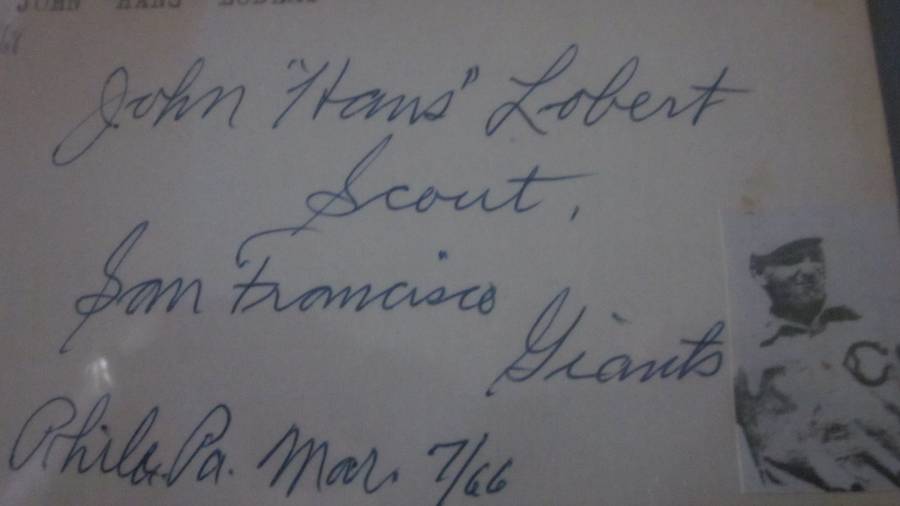 JOHN "HANS" LOBERT
68
John "Hans" Lobert
Scout,
San Francisco
Giants
Phila. Pa. Mar. 7/66
C